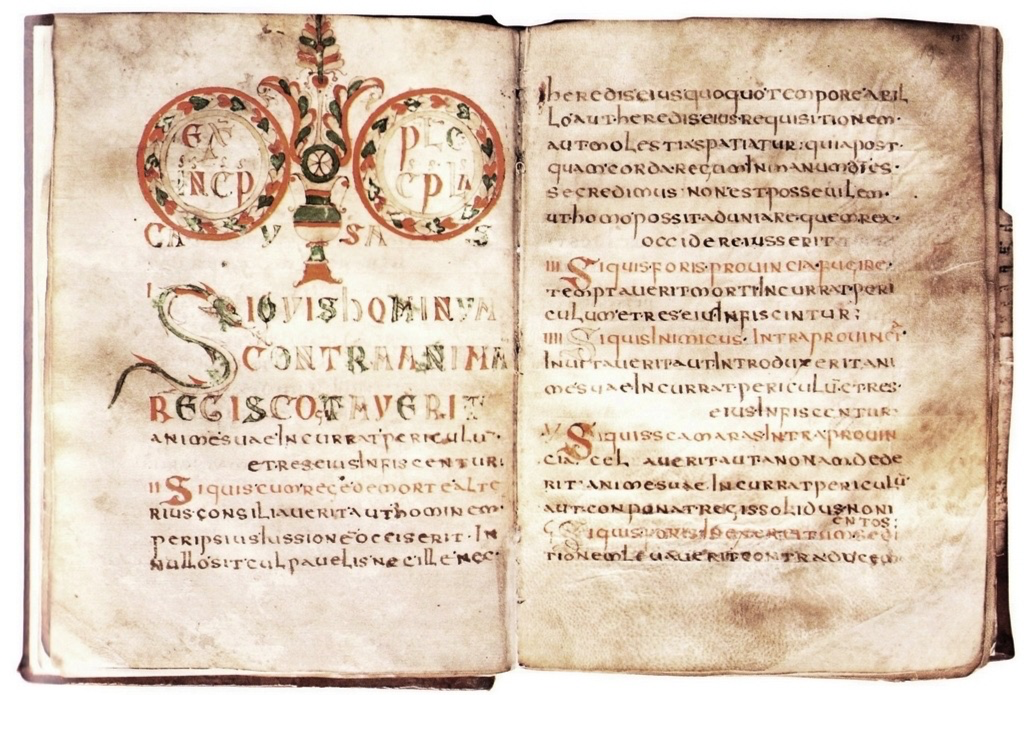 CA V SA S
I SIQVIS hOMINVM
CONTRA ANIMA
REGIS COTAVERIT
animesuaeIncurratpericulū
etreseiusInfiscentur;
II Siquiscumregedemortealte
riusconsiliaueritauthominem
peripsiusIussioneocciserit· In
nullositculpauelisnecillenec
heredis eius quoquotemporeabil
loautheredis eius requisitionem·
automolestiaspatiatur; quiapost
quamcordaregumInmanumdiēs·
secredimus· nonestposseuilem·
uthomopossitaduniarequemrex
occidereiusserit
III Siquisforisprouinciafugire·
temptaueritmortiIncurratperi
culumetreseiusInfiscintur;
IIII SiquisInimicus· Intraprouincia
InuitaueritautIntroduxeritani
mesuaeIncurratpericulū· etres·
eiusInfiscentur·
V SiquisscamarasIntraprouin
cia cel aueritautanonamdede
rit· animesuae· Incurratpericulū
autconponatregissolidusnon
entos;
tionemleuaueritcontraducem